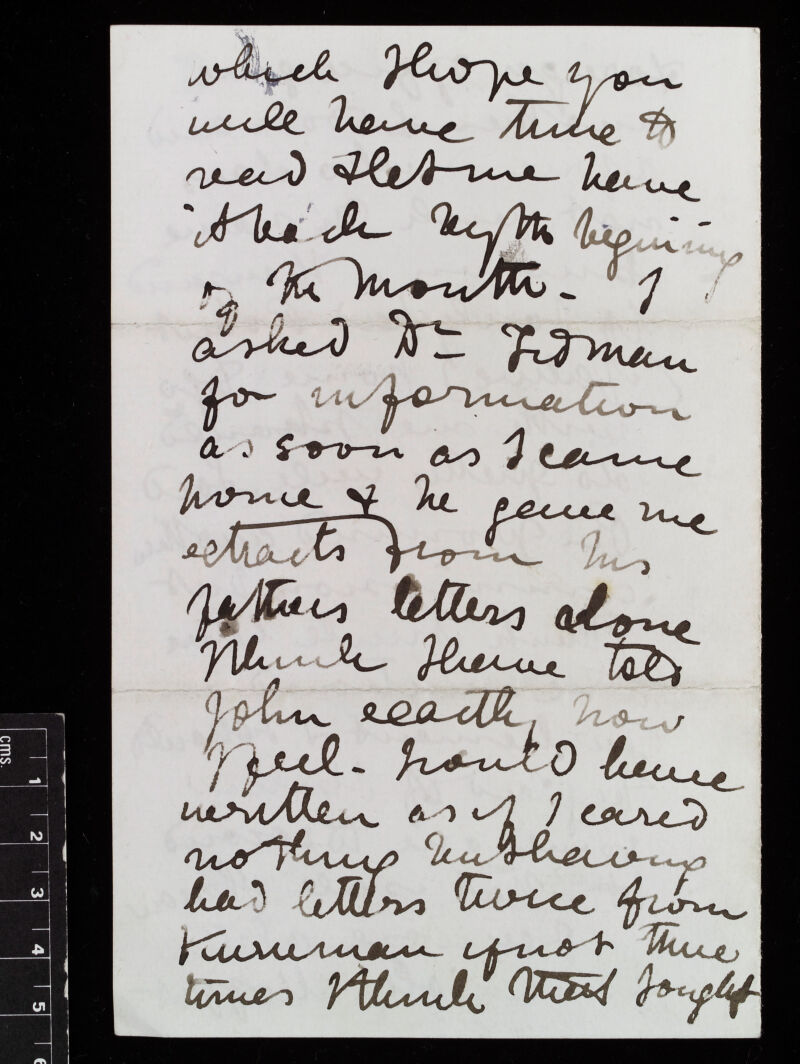 which I hope you
will have time to
read & let me have
it back by the begining
of the month - I
asked Dr Tidman
for information
as soon as I came
home & he gave me
ectracts from his
fathers letters alone
I think I have told
John exactly how
I feel - I would have
written as if I cared
nothing but having
had letters twice from
Kuruman if not three
times I think that I ought
cms.
1
2
3
4
5
6